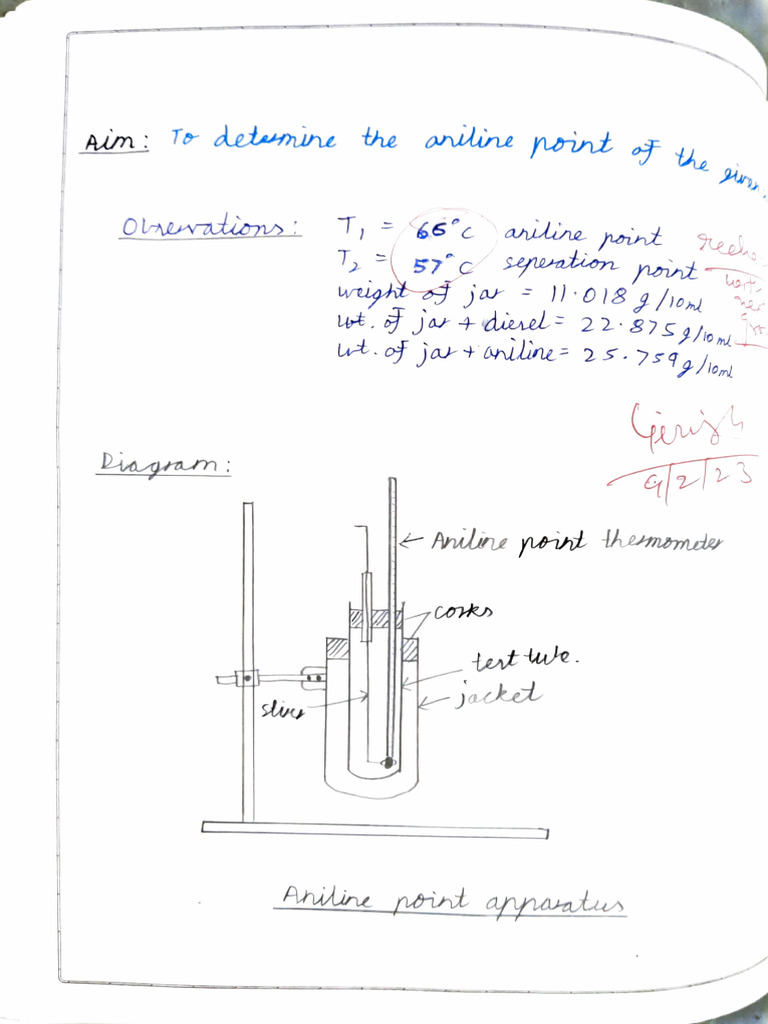 Aim: To determine the aniline point of the given
Observations: T₁ = 66°C aniline point
T₂ = 57°C seperation point
weight of jar = 11.018 g/10ml
wt. of jar + diesel = 22.875g/10ml
wt. of jar + aniline = 25.759g/10ml
9/2/23
Diagram:
← Aniline point thermometer
corks
test tube.
jacket
Aniline point apparatus